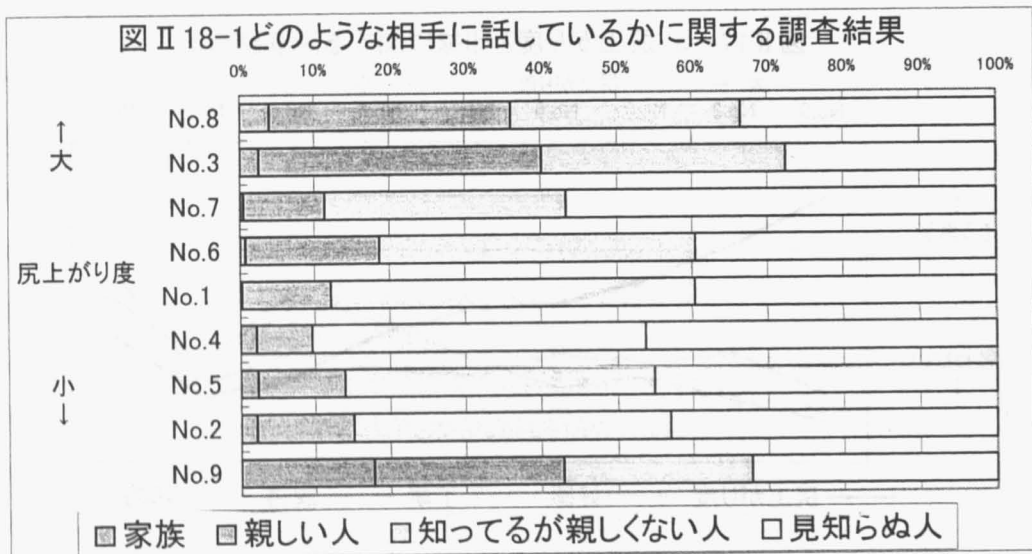 図Ⅱ18-1どのような相手に話しているかに関する調査結果
0% 10% 20% 30% 40% 50% 60% 70% 80% 90% 100%
No.8
↑
大
No.3
No.7
No.6
尻上がり度
No.1
No.4
小
No.5
↓
No.2
No.9
家族 親しい人 知ってるが親しくない人 見知らぬ人